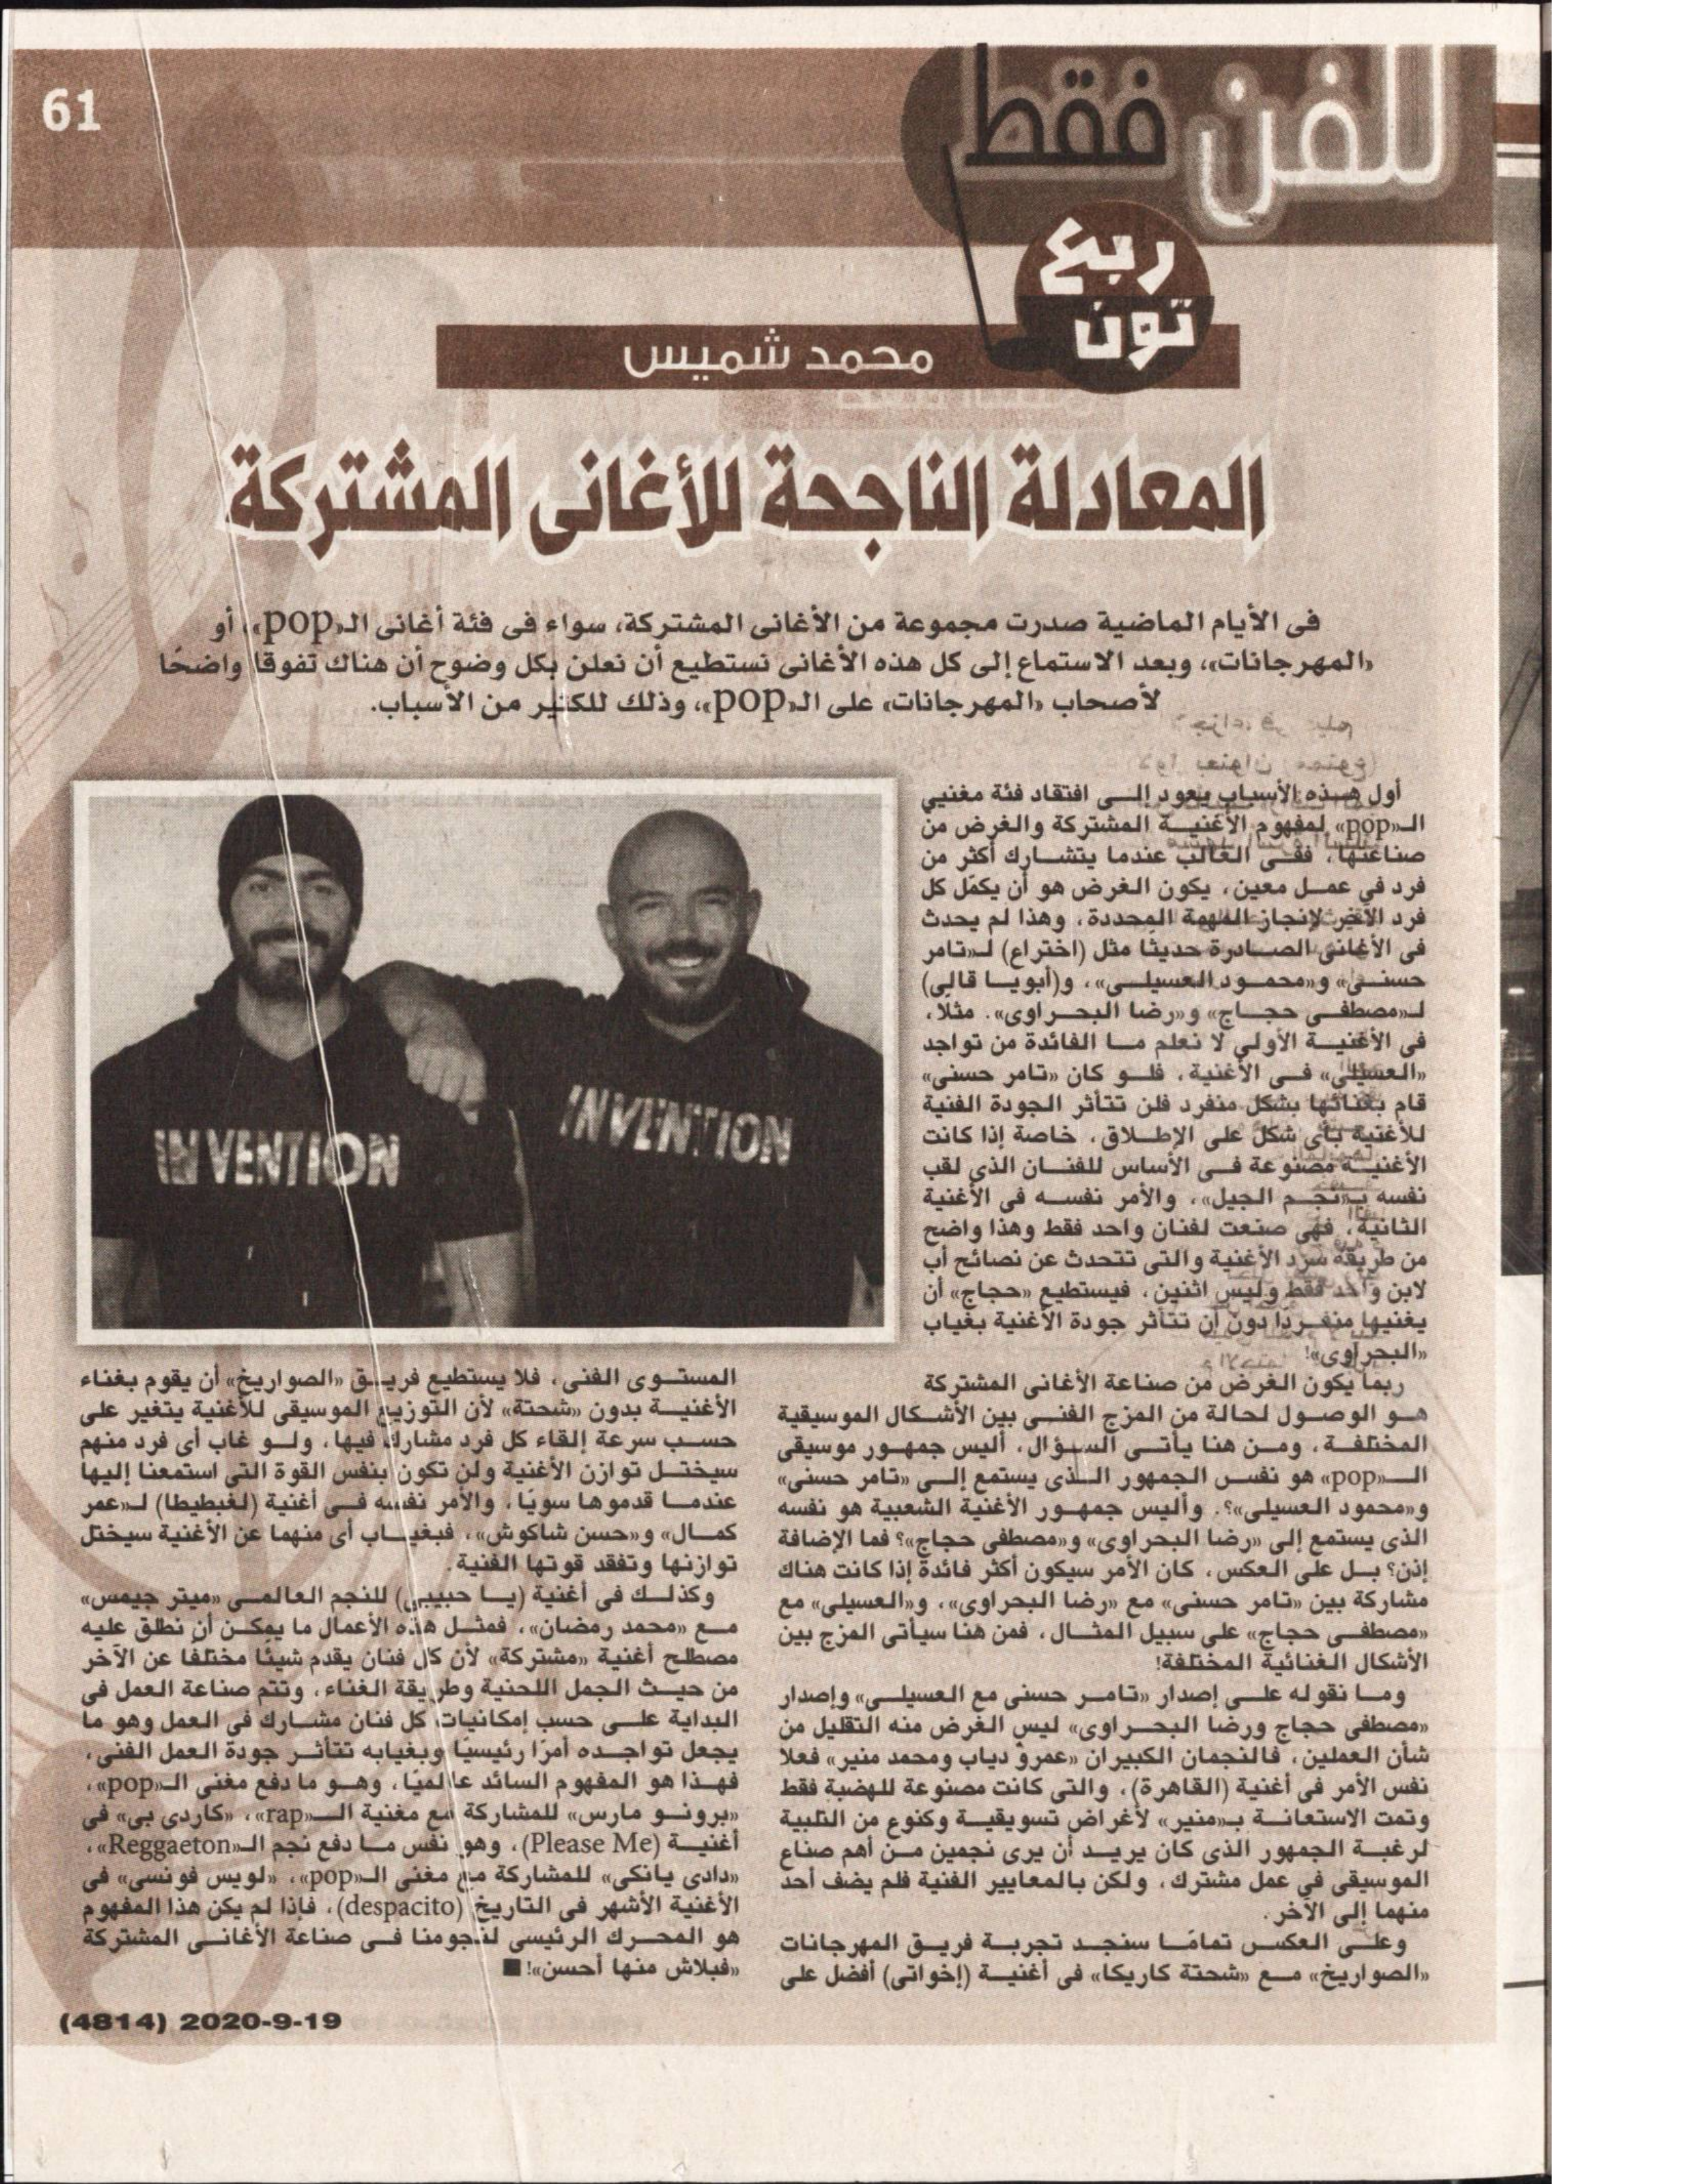 61
للفن فقط
ربع
تون
محمد شميس
المعادلة الناجحة للأغانى المشتركة
فى الأيام الماضية صدرت مجموعة من الأغانى المشتركة، سواء فى فئة أغانى الـ«pop»، أو
«المهرجانات»، وبعد الاستماع إلى كل هذه الأغانى نستطيع أن نعلن بكل وضوح أن هناك تفوقا واضحًا
لأصحاب «المهرجانات» على الـ«pop»، وذلك للكثير من الأسباب.
أول هذه الأسباب يعود إلى افتقاد فئة مغنيي
الـ«pop» لمفهوم الأغنية المشتركة والغرض من
صناعتها، ففى الغالب عندما يتشارك أكثر من
فرد في عمل معين، يكون الغرض هو أن يكمّل كل
فرد الآخر لإنجاز المهمة المحددة، وهذا لم يحدث
فى الأغانى الصادرة حديثًا مثل (اختراع) لـ«تامر
حسنى» و«محمود العسيلى»، و(أبويا قالى)
لـ«مصطفى حجاج» و«رضا البحراوى». مثلا،
فى الأغنية الأولى لا نعلم ما الفائدة من تواجد
«العسيلى» فى الأغنية، فلو كان «تامر حسنى»
قام بغنائها بشكل منفرد فلن تتأثر الجودة الفنية
للأغنية بأى شكل على الإطلاق، خاصة إذا كانت
الأغنية مصنوعة فى الأساس للفنان الذى لقب
نفسه بـ«نجم الجيل»، والأمر نفسه فى الأغنية
الثانية، فهى صنعت لفنان واحد فقط وهذا واضح
من طريقة سرد الأغنية والتى تتحدث عن نصائح أب
لابن واحد فقط وليس اثنين، فيستطيع «حجاج» أن
يغنيها منفردًا دون أن تتأثر جودة الأغنية بغياب
«البحراوى»!
ربما يكون الغرض من صناعة الأغانى المشتركة
هو الوصول لحالة من المزج الفنى بين الأشكال الموسيقية
المختلفة، ومن هنا يأتى السؤال، أليس جمهور موسيقى
الـ«pop» هو نفس الجمهور الذى يستمع إلى «تامر حسنى»
و«محمود العسيلى»؟. وأليس جمهور الأغنية الشعبية هو نفسه
الذى يستمع إلى «رضا البحراوى» و«مصطفى حجاج»؟ فما الإضافة
إذن؟ بل على العكس، كان الأمر سيكون أكثر فائدة إذا كانت هناك
مشاركة بين «تامر حسنى» مع «رضا البحراوى»، و«العسيلى» مع
«مصطفى حجاج» على سبيل المثال، فمن هنا سيأتى المزج بين
الأشكال الغنائية المختلفة!
وما نقوله على إصدار «تامر حسنى مع العسيلى» وإصدار
«مصطفى حجاج ورضا البحراوى» ليس الغرض منه التقليل من
شأن العملين، فالنجمان الكبيران «عمرو دياب ومحمد منير» فعلا
نفس الأمر فى أغنية (القاهرة)، والتى كانت مصنوعة للهضبة فقط
وتمت الاستعانة بـ«منير» لأغراض تسويقية وكنوع من التلبية
لرغبة الجمهور الذى كان يريد أن يرى نجمين من أهم صناع
الموسيقى في عمل مشترك، ولكن بالمعايير الفنية فلم يضف أحد
منهما إلى الآخر.
وعلى العكس تمامًا سنجد تجربة فريق المهرجانات
«الصواريخ» مع «شحتة كاريكا» فى أغنية (إخواتى) أفضل على
INVENTION
INVENTION
المستوى الفنى، فلا يستطيع فريق «الصواريخ» أن يقوم بغناء
الأغنية بدون «شحتة» لأن التوزيع الموسيقى للأغنية يتغير على
حسب سرعة إلقاء كل فرد مشارك فيها، ولو غاب أى فرد منهم
سيختل توازن الأغنية ولن تكون بنفس القوة التى استمعنا إليها
عندما قدموها سويًا، والأمر نفسه فى أغنية (لغبطيطا) لـ«عمر
كمال» و«حسن شاكوش»، فبغياب أى منهما عن الأغنية سيختل
توازنها وتفقد قوتها الفنية.
وكذلك فى أغنية (يا حبيبى) للنجم العالمى «ميتر جيمس»
مع «محمد رمضان»، فمثل هذه الأعمال ما يمكن أن نطلق عليه
مصطلح أغنية «مشتركة» لأن كل فنان يقدم شيئًا مختلفًا عن الآخر
من حيث الجمل اللحنية وطريقة الغناء، وتتم صناعة العمل فى
البداية على حسب إمكانيات كل فنان مشارك فى العمل وهو ما
يجعل تواجده أمرًا رئيسيًا وبغيابه تتأثر جودة العمل الفنى،
فهذا هو المفهوم السائد عالميًا، وهو ما دفع مغنى الـ«pop»،
«برونو مارس» للمشاركة مع مغنية الـ«rap»، «كاردى بى» فى
أغنية (Please Me)، وهو نفس ما دفع نجم الـ«Reggaeton»،
«دادى يانكى» للمشاركة مع مغنى الـ«pop»، «لويس فونسى» فى
الأغنية الأشهر فى التاريخ (despacito)، فإذا لم يكن هذا المفهوم
هو المحرك الرئيسى لنجومنا فى صناعة الأغانى المشتركة
«فبلاش منها أحسن»!
(4814) 2020-9-19